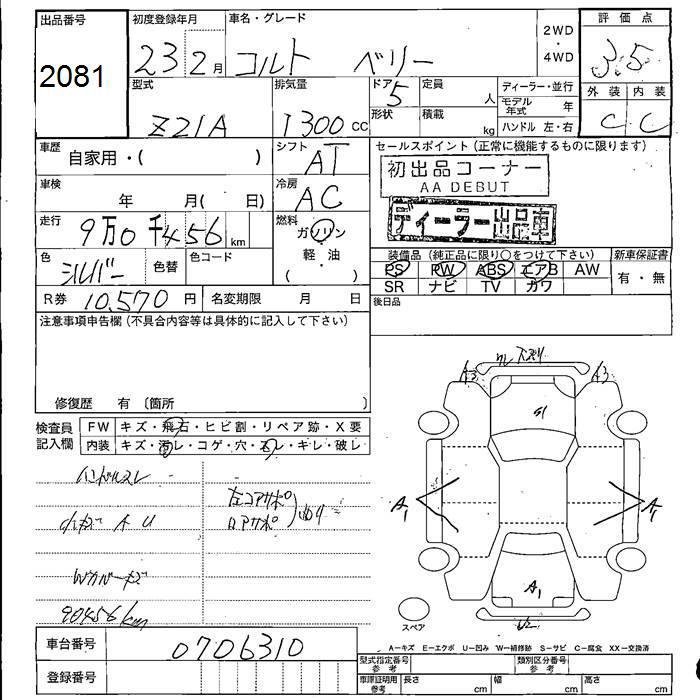 出品番号
2081
初度登録年月
23 2月
車名・グレード
コルト ベリー
2WD
・
4WD
評価点
3.5
外装 内装
C C
型式
Z21A
排気量
1300 cc
ドア 5
形状
定員 人
積載 kg
ディーラー・並行
モデル年式 年
ハンドル 左・右
車歴
自家用・( )
シフト
AT
セールスポイント (正常に機能するものに限ります)
初出品コーナー
AA DEBUT
ディーラー出品車
車検
年 月( 日)
冷房
AC
走行
9万0千456 km
燃料
ガソリン
軽・油
( )
色
シルバー
色替
色コード
装備品 (純正品に限り○をつけて下さい)
PS PW ABS エアB AW
SR ナビ TV カワ
新車保証書
有・無
R券 10,570円
名変期限 月 日
後日品
注意事項申告欄 (不具合内容等は具体的に記入して下さい)
修復歴 有 〔箇所 〕
検査員記入欄
FW キズ・飛石・ヒビ割・リペア跡・X要
内装 キズ・汚レ・コゲ・穴・スレ・キレ・破レ
ハンドルスレ
左コアサポ
ロアサポ
Wカバーキズ
90456km
A3
A3
A1
A1
A1
U2
スペア
A-キズ E-エクボ U-凹み W-補修跡 S-サビ C-腐食 XX-交換済
車台番号
0706310
登録番号
型式指定番号 参考
類別区分番号 参考
車庫証明用 参考
長さ cm
幅 cm
高さ cm